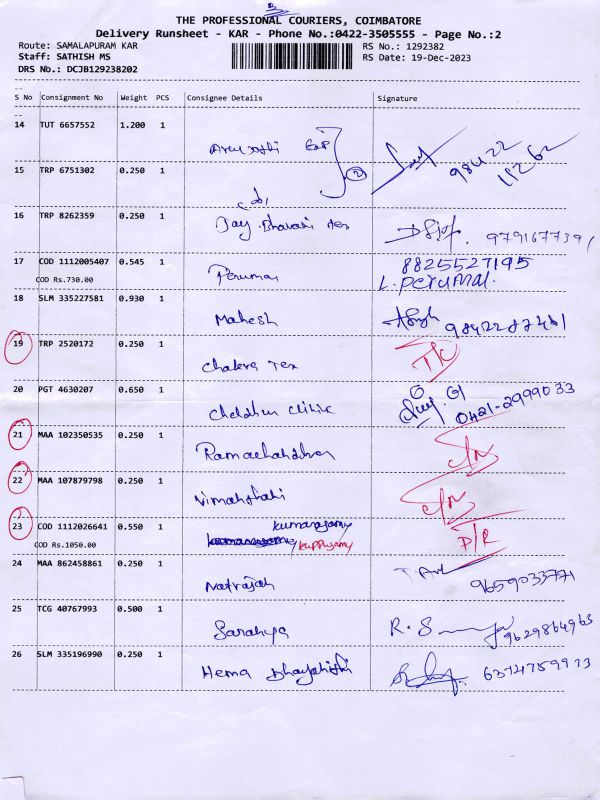 THE PROFESSIONAL COURIERS, COIMBATORE
Delivery Runsheet - KAR - Phone No.:0422-3505555 - Page No.:2
Route: SAMALAPURAM KAR RS No.: 1292382
Staff: SATHISH MS RS Date: 19-Dec-2023
DRS No.: DCJB129238202
S No Consignment No Weight PCS Consignee Details Signature
14 TUT 6657552 1.200 1
15 TRP 6751302 0.250 1 2 98422
16 TRP 8262359 0.250 1 Jay Bhavani Tex
17 COD 1112005407 0.545 1 Perumal 8825527195
COD Rs.730.00 L. Perumal.
18 SLM 335227581 0.930 1 Mahesh 9842287461
19 TRP 2520172 0.250 1 Chakra Tex
20 PGT 4630207 0.650 1 clinic 0421-2999033
21 MAA 102350535 0.250 1 Ramachandran
22 MAA 107879798 0.250 1
23 COD 1112026641 0.550 1 kumarasamy
COD Rs.1050.00 /kuppusamy D/R
24 MAA 862458861 0.250 1 Natrajah 9659033771
25 TCG 40767993 0.500 1 Saranya 9629864963
26 SLM 335196990 0.250 1 Hema